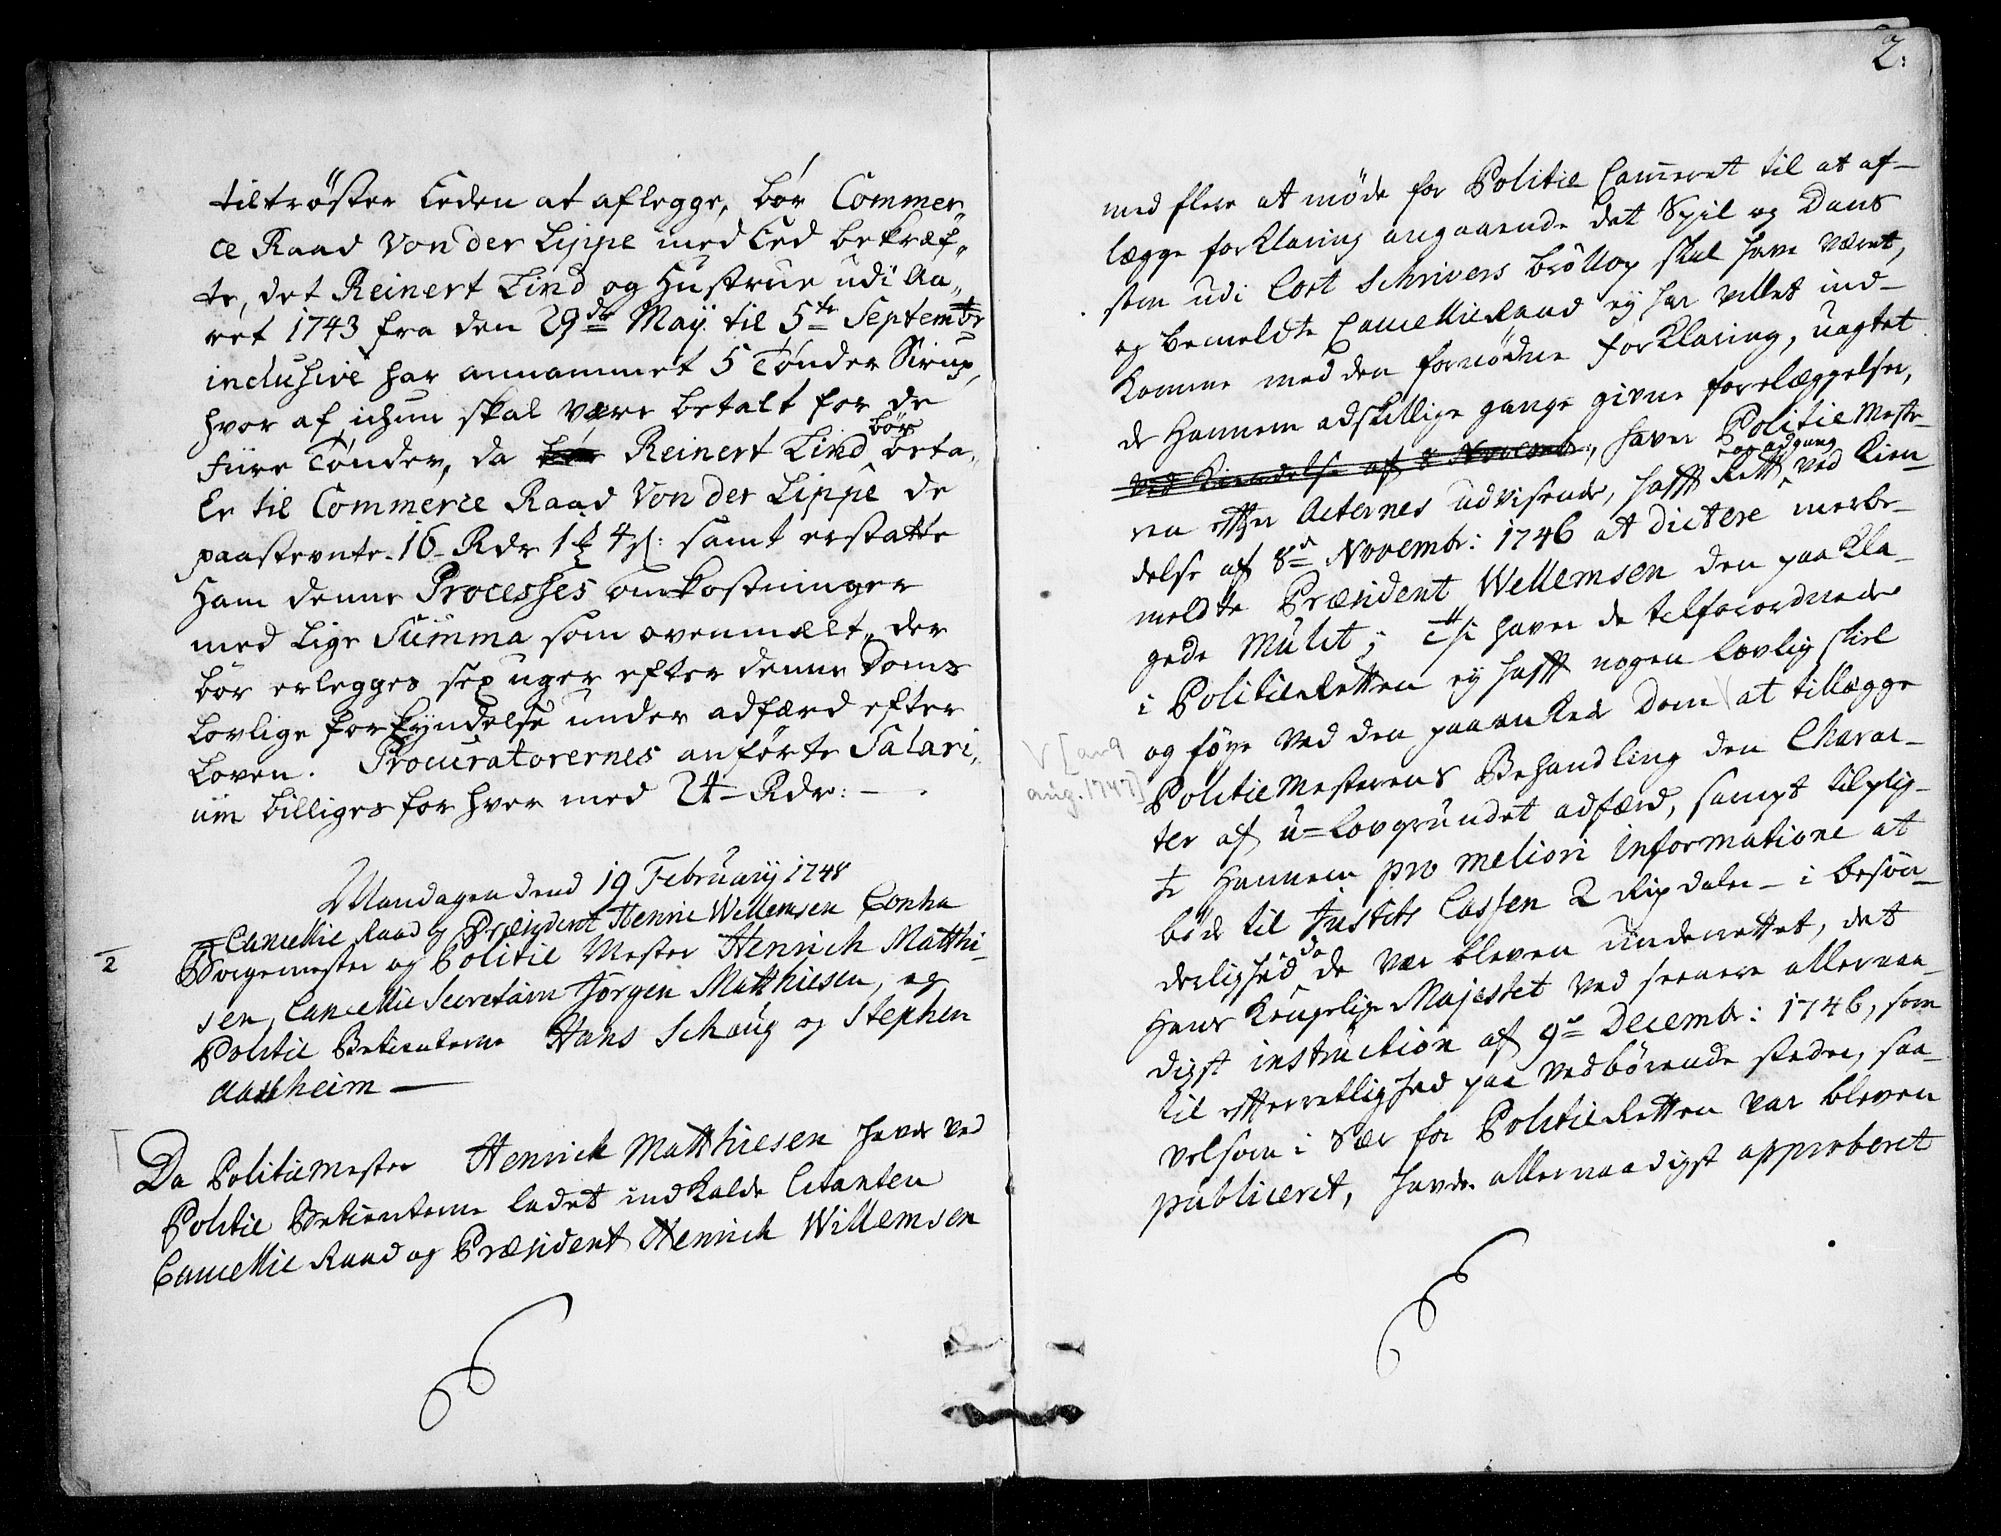 tiltrøster Eeden at aflegge, bør Commer„
ce Raad Von der Lippe med Eed bekræf„
te, det Reinert Lind og Hustrue udi Aa„
ret 1743 fra den 29de Maÿ til 5te Septembr
inclusive har annammet 5 Tønder Sirup,
hvor af ichun skal være betalt for de
fiire Tønder, da Reinert Lind bør beta„
le til Commerce Raad Von der Lippe de
paastevnte 16 Rdr 1 ꝳ 4 s: samt erstatte
Ham denne Processes omkostninger
med lige Summa som ovenmælt, der
bør erlegges sex uger efter denne Doms
lovlige forkÿndelse under adfærd efter
Loven. Procuratorernes anførte Salari„
um billiges for hver med 24 Rdr: —
Mandagen dend 19 Februarij 1748
Cancellie Raad og Præsident Henric Willemsen Contra
2
Borgemester og Politie Mester Henrich Matthi-
sen, Cancellie Secretaire Jørgen Matthiesen, og
Politie Betienterne Hans Schaug og Stephen
Aasheim —
Da Politiemester Henrich Matthiesen havde ved
Politie Betienterne ladet indkalde Citanten
Cancellie Raad og Præsident Henrich Willemsen
2.
med flere at møde for Politie Cameret til at af-
lægge forklaring angaaende det Spil og Dans
som udi Cort Schrivers brøllop skal have været,
og bemeldte Cancellie Raad ej har villet ind-
komme med den fornødne forklaring, uagtet
de Hannem adskillige gange givne forelæggelser,
ved Kiendelse af 8 Novembr, haver PolitieMeste-
ren efter Acternes udvisende, hafft Rett og adgang ved Kien-
delse af 8de Novembr: 1746 at dictere merbe-
meldte Præsident Willemsen den paakla-
gede Mulct; haver de tilforordnede
i PolitieRetten ej hafft nogen lovlig skiel
og føye ved den paaankede Dom at tillægge
V [aug
aug. 1747]
PolitieMesterens Behandling den Charac-
ter af u-lovgrundet adfærd, sampt tilplig-
te Hannem pro meliori informatione at
bøde til Justits Cassen 2 Rixdaler — i besøn-
derlighed da de var bleven underrettet, det
Hans Kongelige Majestet ved seenere allernaa-
digst instruction af 9de Decembr: 1746, som
til efterretlighed paa vedbørende steder, saa-
velsom i Sær for PolitieRetten var bleven
publiceret, havde allernaadigst approberet